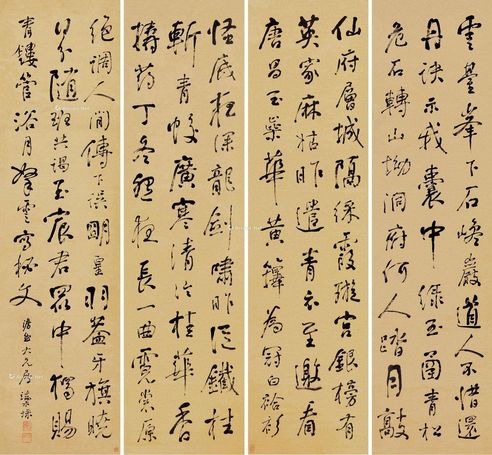 仙府層城隔綵霞璇宮銀榜有
英家麻姑昨遣青衣至邀看
唐昌玉蕊華黄籜為冠白袷衫
雲臺峯下石巉巖道人不惜還
丹訣示我囊中綠玉函青松
危石轉山坳洞府何人踏月敲
怪底匣深龍劍嘯昨從鐵柱
斬青蛟廣寒清冷桂華香
擣葯丁冬聽夜長一曲霓裳原
絕調人間傳下誤明皇羽葢牙旗曉
日分隨班共謁玉宸君眾中獨賜
青鏤管浴月拏雲寫秘文
大兄屬